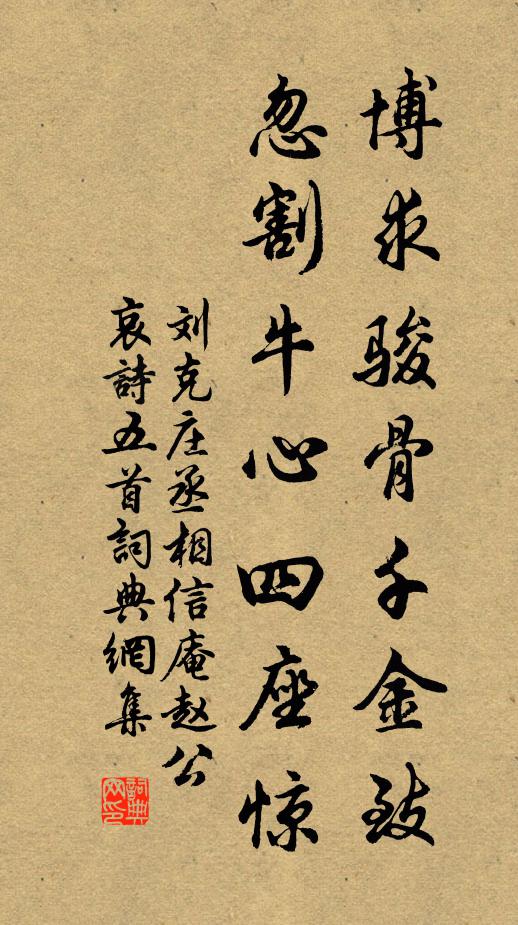 博求骏骨千金致
忽割牛心四座惊
刘克庄丞相信庵赵公
哀詩五首詞典網集
詞典
网印